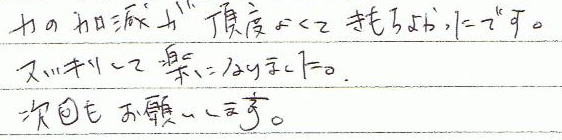 力の加減が頂度よくてきもちよかったです。
スッキリして楽になりました。
次回もお願いします。